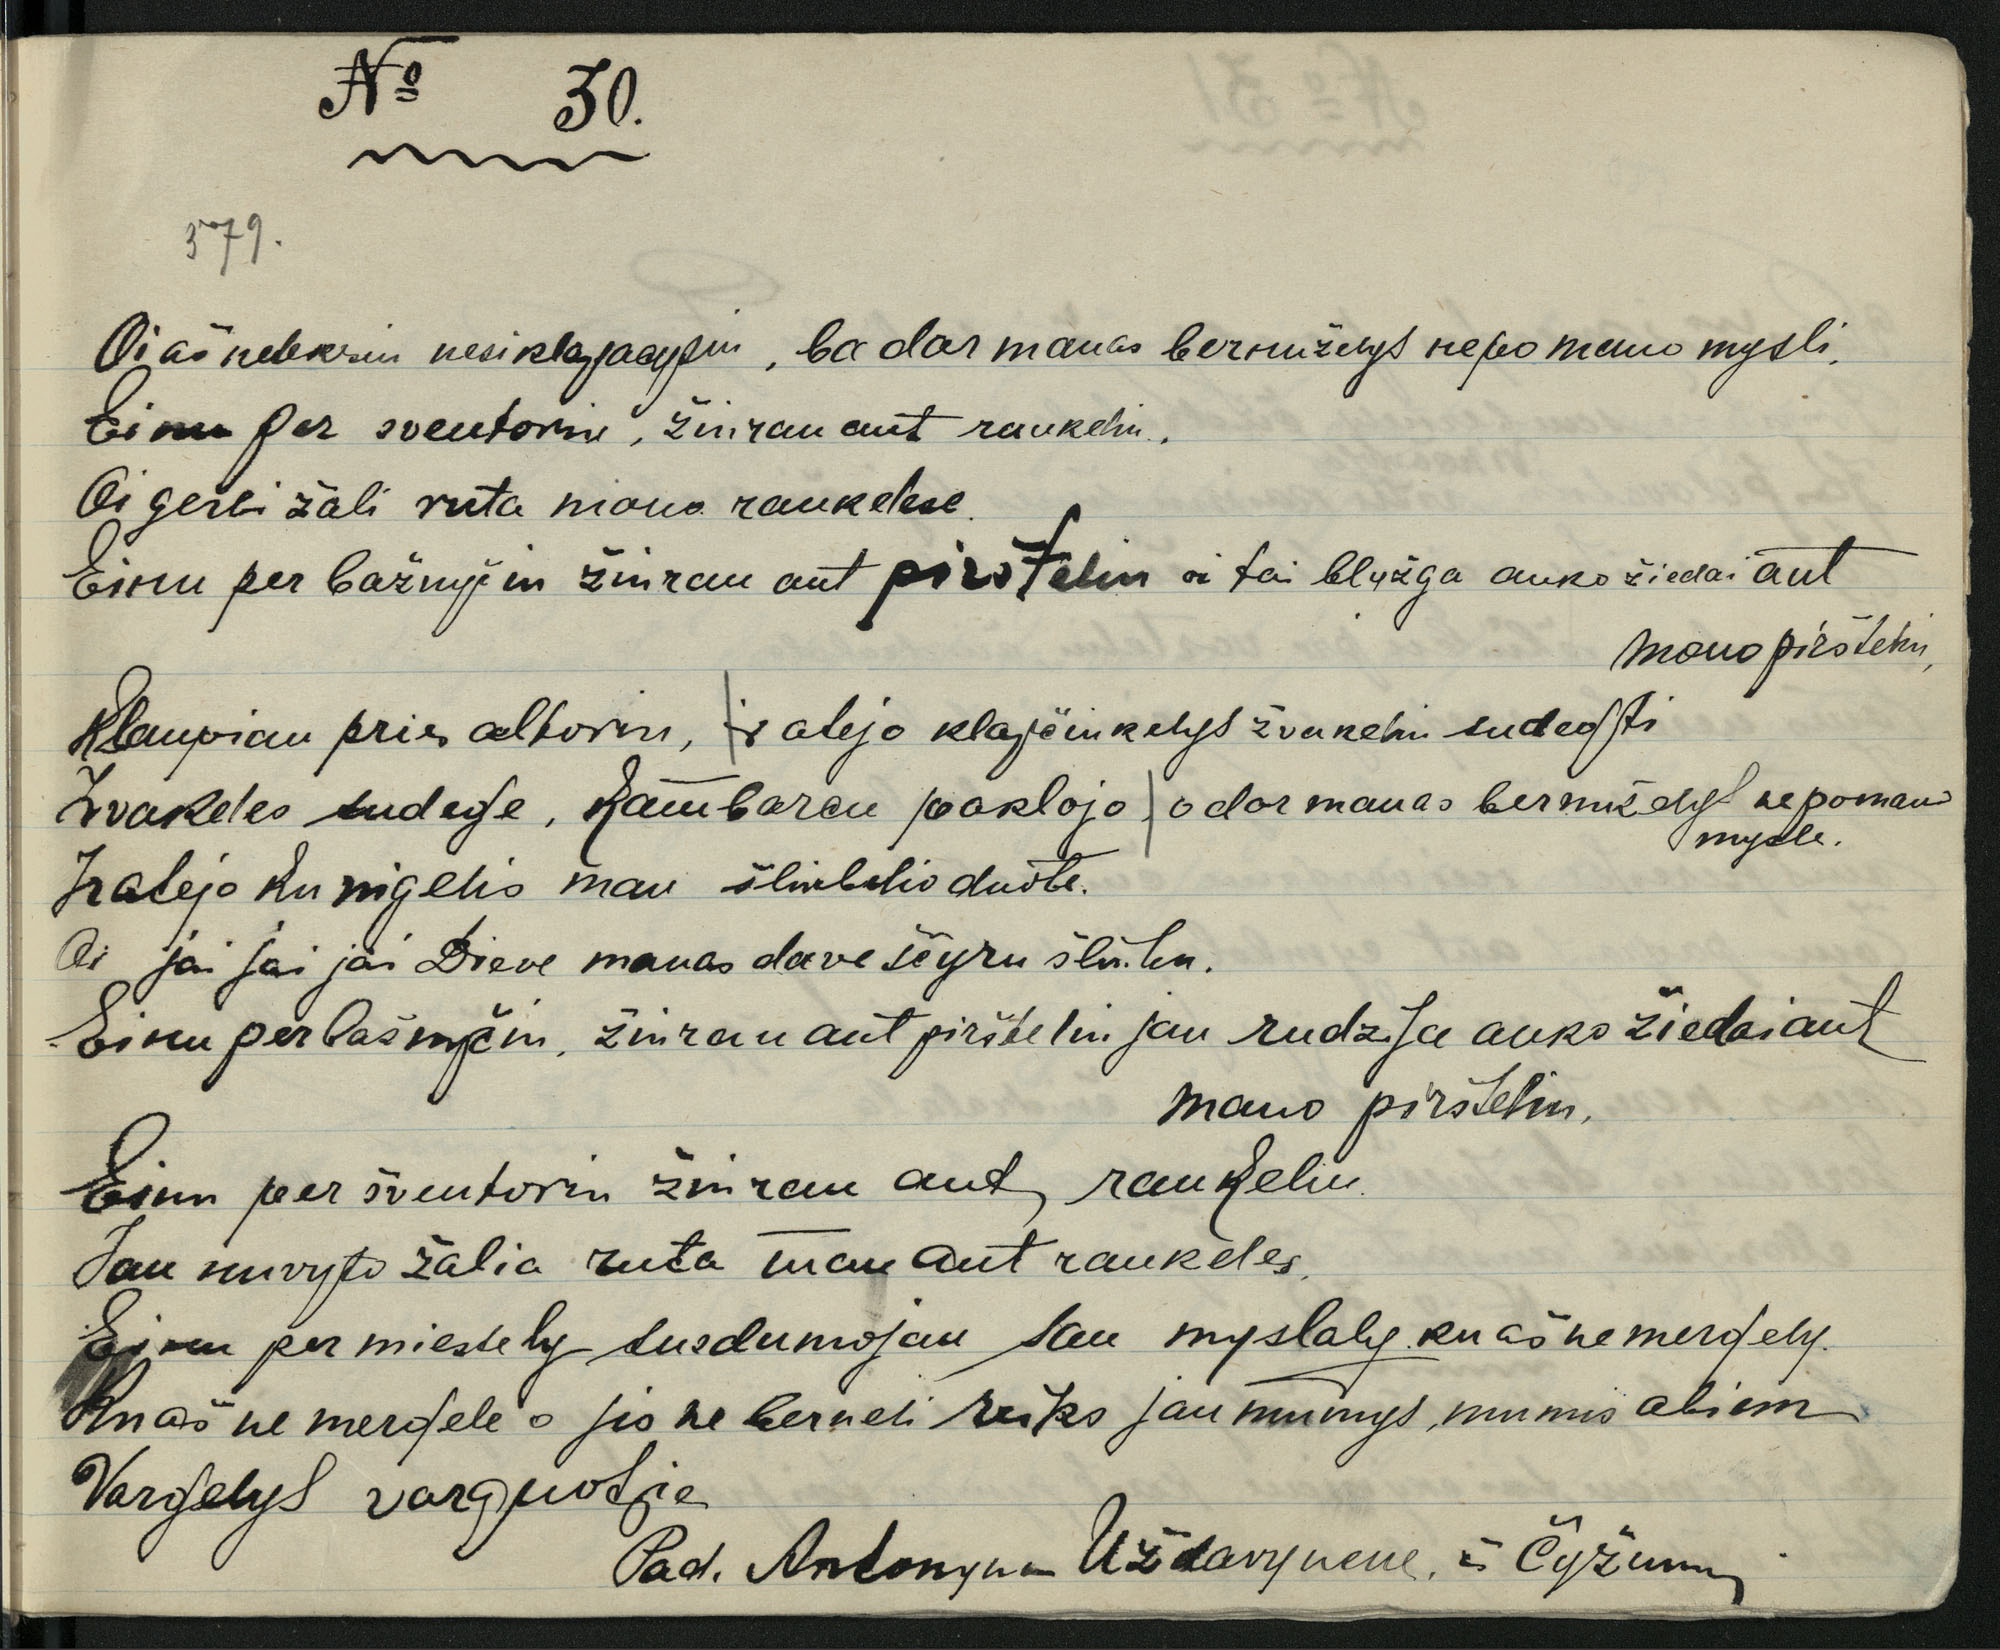 № 30.
379.
Oi aš neteksiu nesiklapacysiu, ba dar manas bernužėlys nepo mano mysli.
Einu per sventoriu, žiurau ant rankeliu.
Oi geresi žali ruta mano rankelese.
Einu per bažnyčiu žiurau ant piršteliu oi tai blyzga aukso žiedai ant
mano piršteliu,
Klaupiau pries altoriu, ir atejo klapčiukelys žvakeliu sudegsti
Žvakeles sudege, kambarau paklojo, o dar manas bernuželys nepo mano
mysle.
Ir atejo kunigelis man šliubelio duote.
Oi jai jai jai Dieve manas dave sčyru šliubu.
Einu per bašnyčiu, žiurau ant piršteliu jau rudzija aukso žiedai ant
mano piršteliu.
Einu per šventoriu žiurau ant rankeliu.
Jau nuvyto žalia ruta man ant rankeles.
Einu per miestely susdumojau sau myslaly ku aš ne mergely.
Ku aš ne mergele o jis ne berneli reiks jau mumys, mumis abiem
Vargelys varguotie
Pad. Antonyna Uždavynene, iš Čyžunų